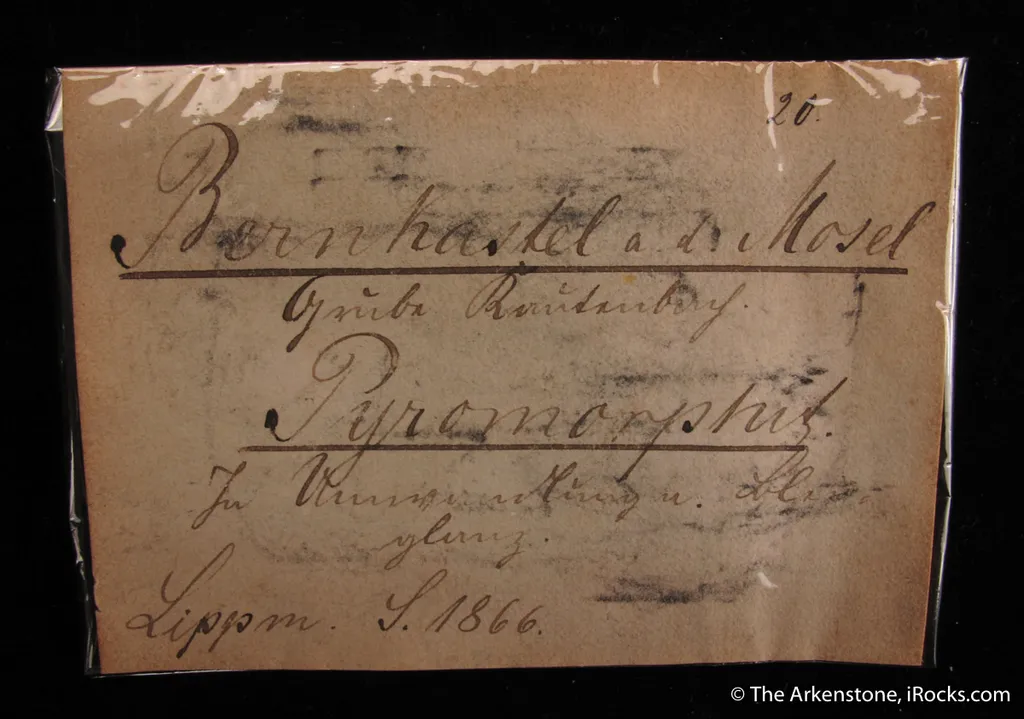 20.
Bernkastel a. d. Mosel
Grube Kautenbach.
Pyromorphit.
In Umwandlung n. Blei-
glanz.
Lippm. S. 1866.
© The Arkenstone, iRocks.com